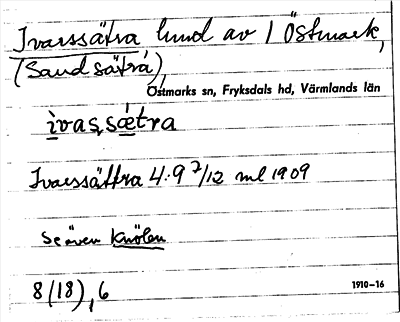 Ivarssätra hmd av 1 Östmark,
(Sandsätra),
Östmarks sn, Fryksdals hd, Värmlands län
ìvas,sǽtra
Ivarssättra 4:9 7/12 ml 1909
se även Knölen
8 (18), 6
1910–16